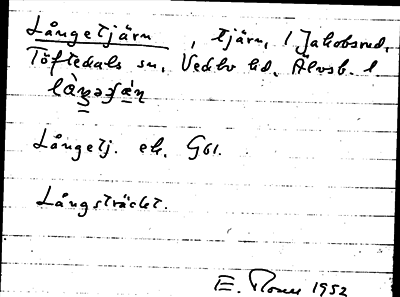 Långetjärn, tjärn, i Jakobsrud,
Töftedals sn, Vedbo hd, Älvsb. l
Långetj. ek. G61.
Långsträckt.
E. 1952